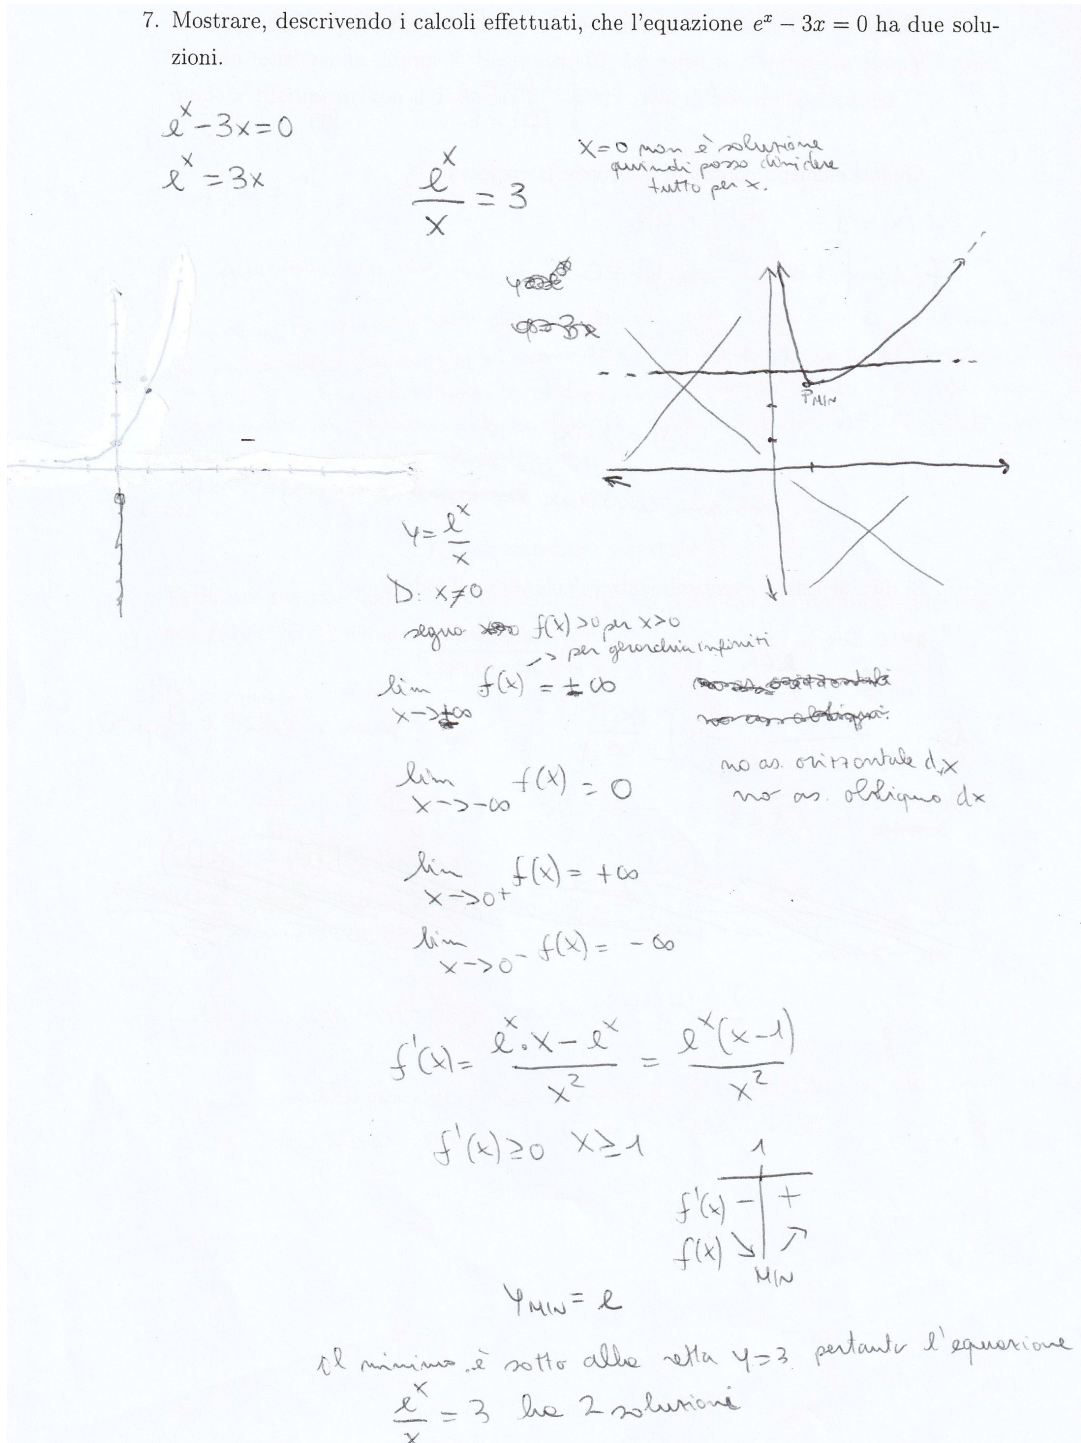 7. Mostrare, descrivendo i calcoli effettuati, che l'equazione e^x − 3x = 0 ha due solu-
zioni.
e^x - 3x = 0
e^x = 3x
e^x/x = 3
x=0 non è soluzione
quindi posso dividere
tutto per x.
P MIN
y = e^x/x
D: x≠0
segno f(x)>0 per x>0
→ per gerarchia infiniti
lim x→+∞ f(x) = +∞
no as. orizzontale dx
no as. obliquo dx
lim x→-∞ f(x) = 0
lim x→0+ f(x) = +∞
lim x→0- f(x) = -∞
f'(x) = (e^x·x - e^x)/x^2 = e^x(x-1)/x^2
f'(x)≥0 x≥1
1
f'(x) - +
f(x) ↘ ↗
MIN
y MIN = e
Il minimo è sotto alla retta y=3 pertanto l'equazione
e^x/x = 3 ha 2 soluzioni